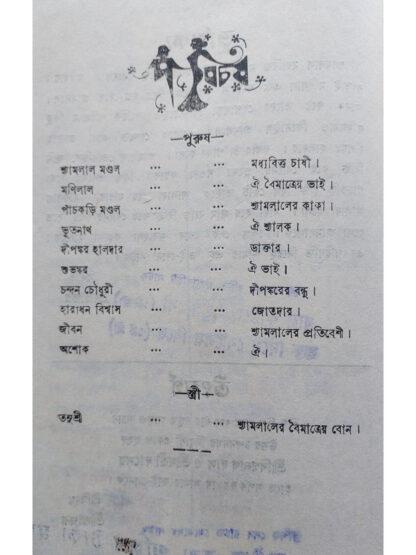 পরিচয়
—পুরুষ—
শ্যামলাল মণ্ডল ... ... মধ্যবিত্ত চাষী।
মণিলাল ... ... ঐ বৈমাত্রেয় ভাই।
পাঁচকড়ি মণ্ডল ... ... শ্যামলালের কাকা।
ভূতনাথ ... ... ঐ শ্যালক।
দীপঙ্কর হালদার ... ... ডাক্তার।
শুভঙ্কর ... ... ঐ ভাই।
চন্দন চৌধুরী ... ... দীপঙ্করের বন্ধু।
হারাধন বিশ্বাস ... ... জোতদার।
জীবন ... ... শ্যামলালের প্রতিবেশী।
অশোক ... ... ঐ।
—স্ত্রী—
তনুশ্রী ... ... শ্যামলালের বৈমাত্রেয় বোন।